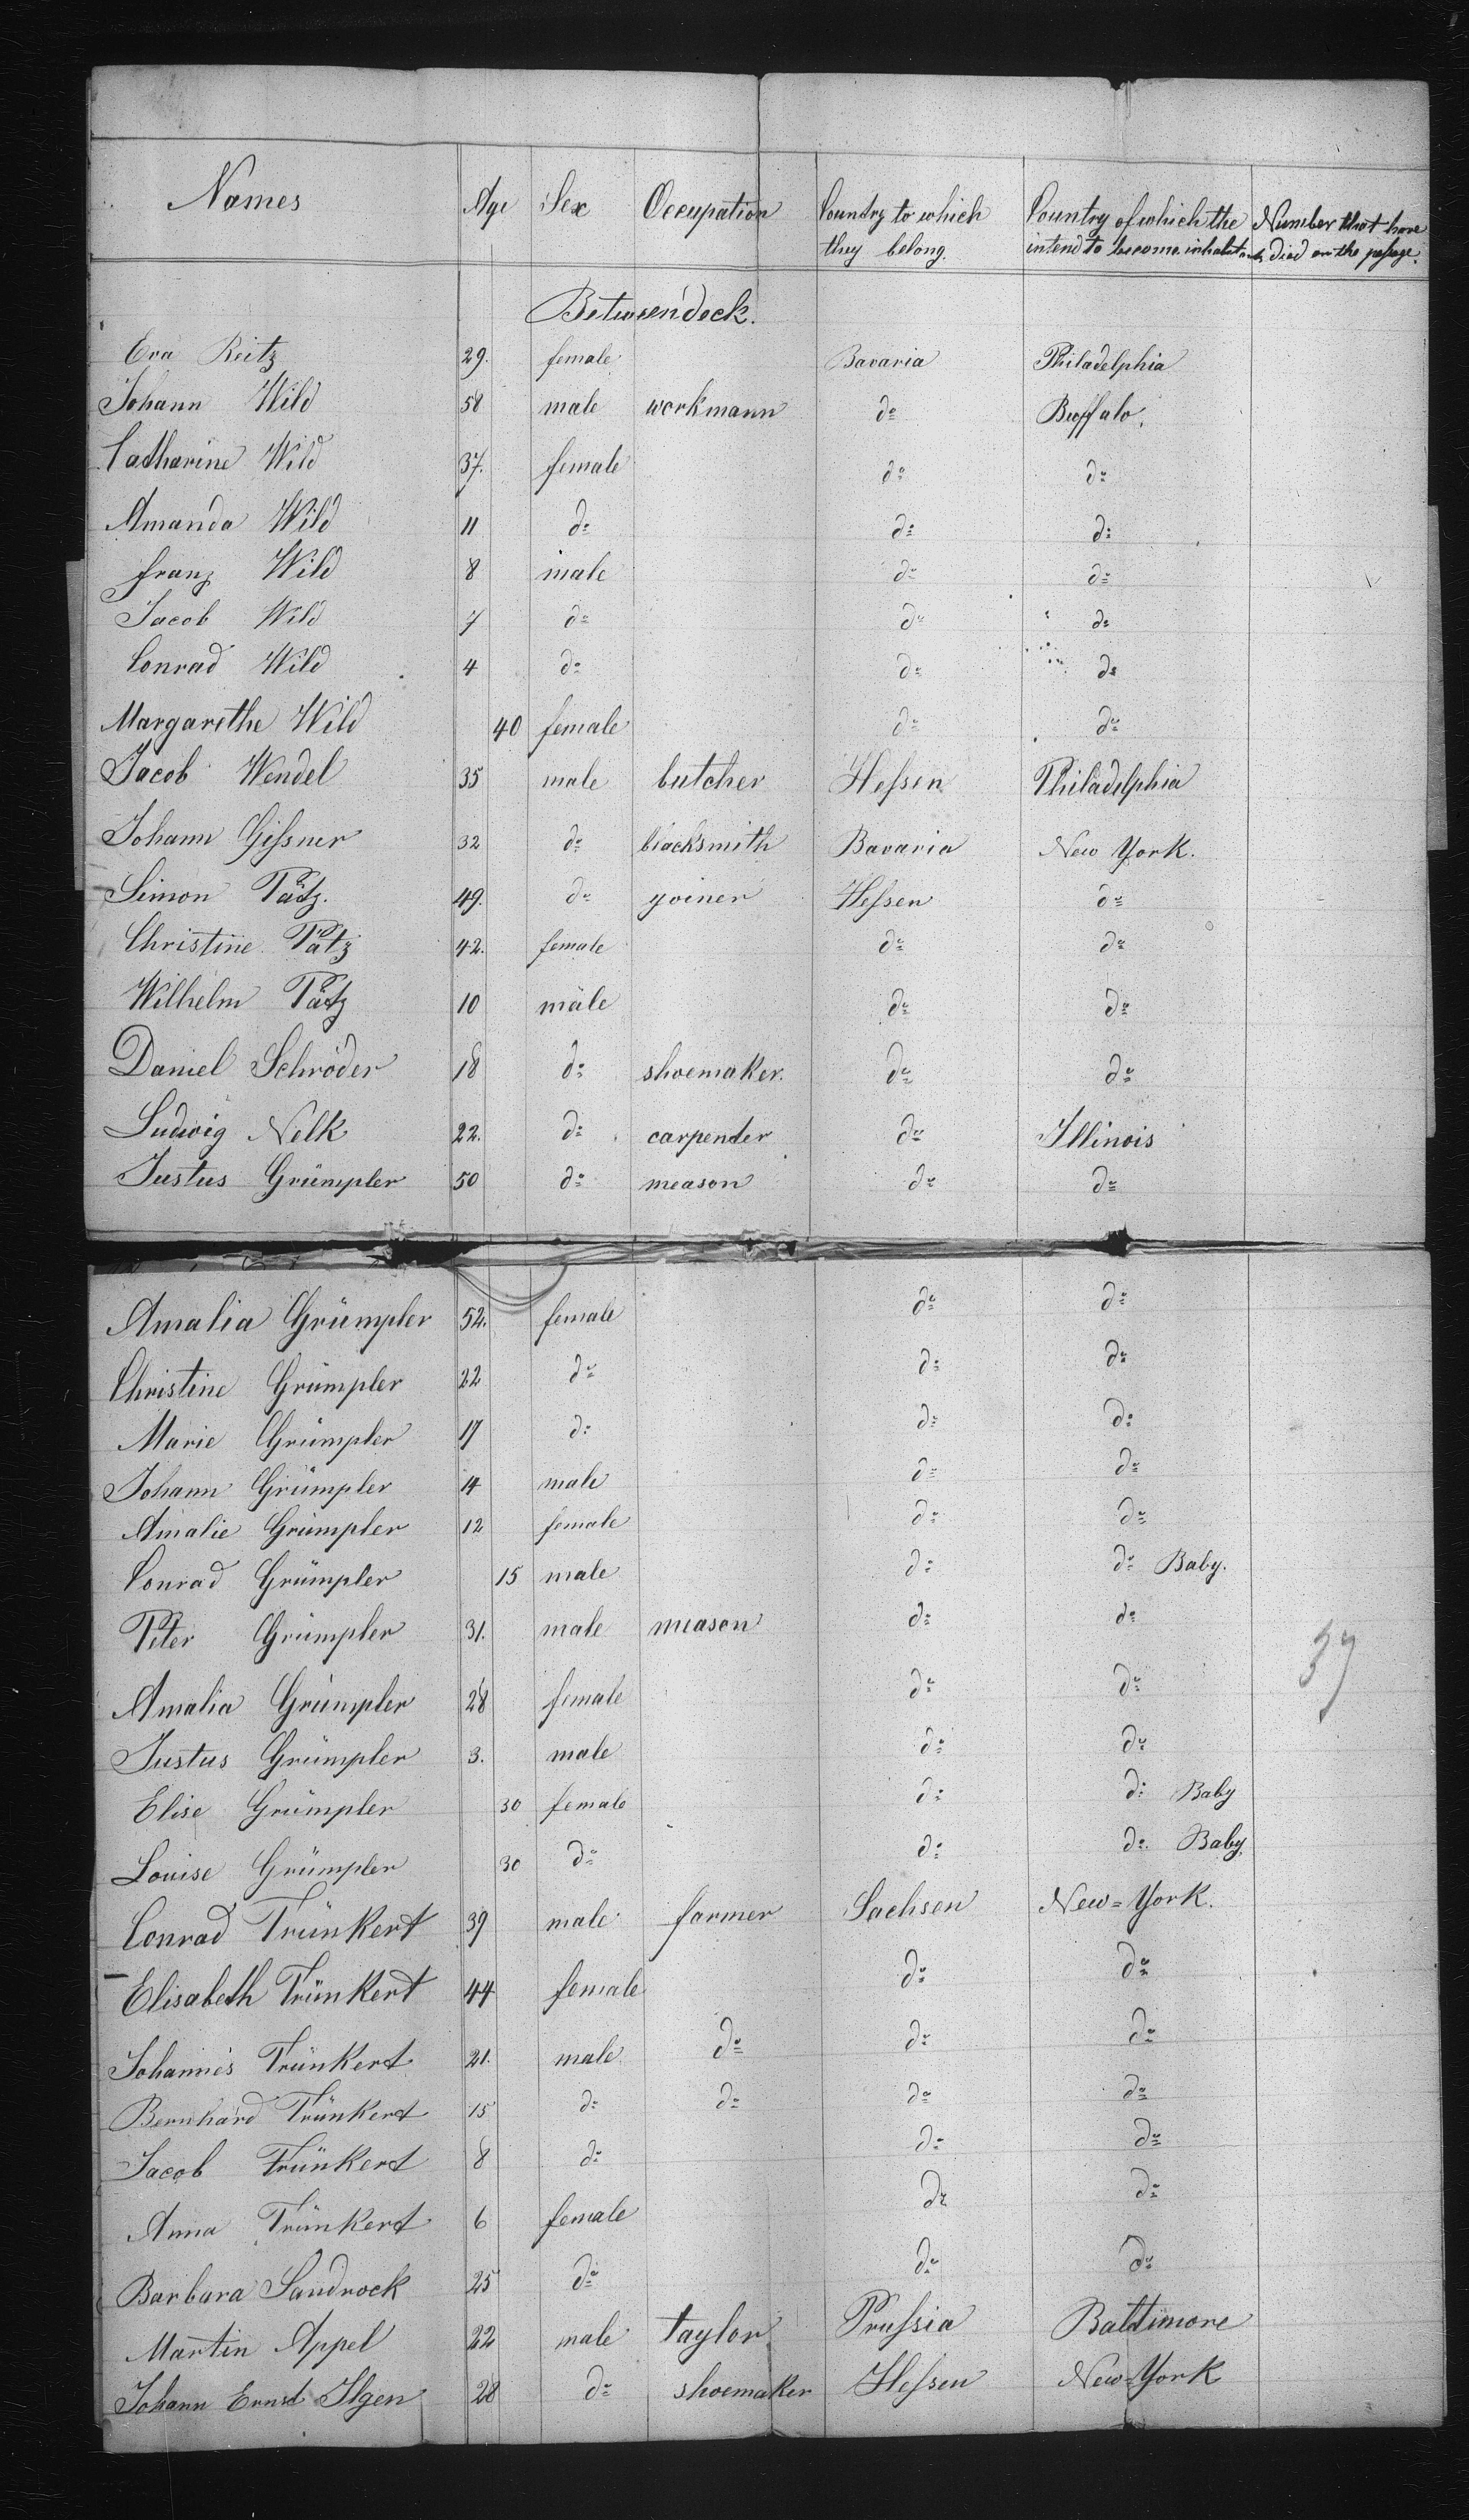 Names Age Sex Occupation Country to which they belong. Country of which the intend to become inhabitants Number that have died on the passage.
Betweendeck.
Eva Reitz 29. female Bavaria Philadelphia
Johann Wild 58 male workmann do Buffalo.
Catharine Wild 37. female do do
Amanda Wild 11 do do do
Franz Wild 8 male do do
Jacob Wild 7 do do do
Conrad Wild 4 do do do
Margarethe Wild 40 female do do
Jacob Wendel 35 male butcher Hessen Philadelphia
Johann Gissner 32 do blacksmith Bavaria New York.
Simon Pätz. 49. do yoiner Hessen do
Christine Pätz 42. female do do
Wilhelm Pätz 10 male do do
Daniel Schröder 18 do shoemaker. do do
Ludwig Nelk 22. do carpender do Illinois
Justus Grümpler 50 do meason do do
Amalia Grümpler 52. female do do
Christine Grümpler 22 do do do
Marie Grümpler 17 do do do
Johann Grümpler 14 male do do
Amalie Grümpler 12 female do do
Conrad Grümpler 15 male do do Baby.
Peter Grümpler 31. male meason do do
Amalia Grümpler 28 female do do
Justus Grümpler 3. male do do
Elise Grümpler 30 female do do Baby
Louise Grümpler 30 do do do Baby
Conrad Trünkert 39 male farmer Sachsen New=York.
Elisabeth Trünkert 44 female do do
Johannes Trünkert 21. male do do do
Bernhard Trünkert 15 do do do do
Jacob Trünkert 8 do do do
Anna Trünkert 6 female do do
Barbara Sandrock 25 do do do
Martin Appel 22 male taylor Prussia Baltimore
Johann Ernst Ilgen 28 do shoemaker Hessen New=York